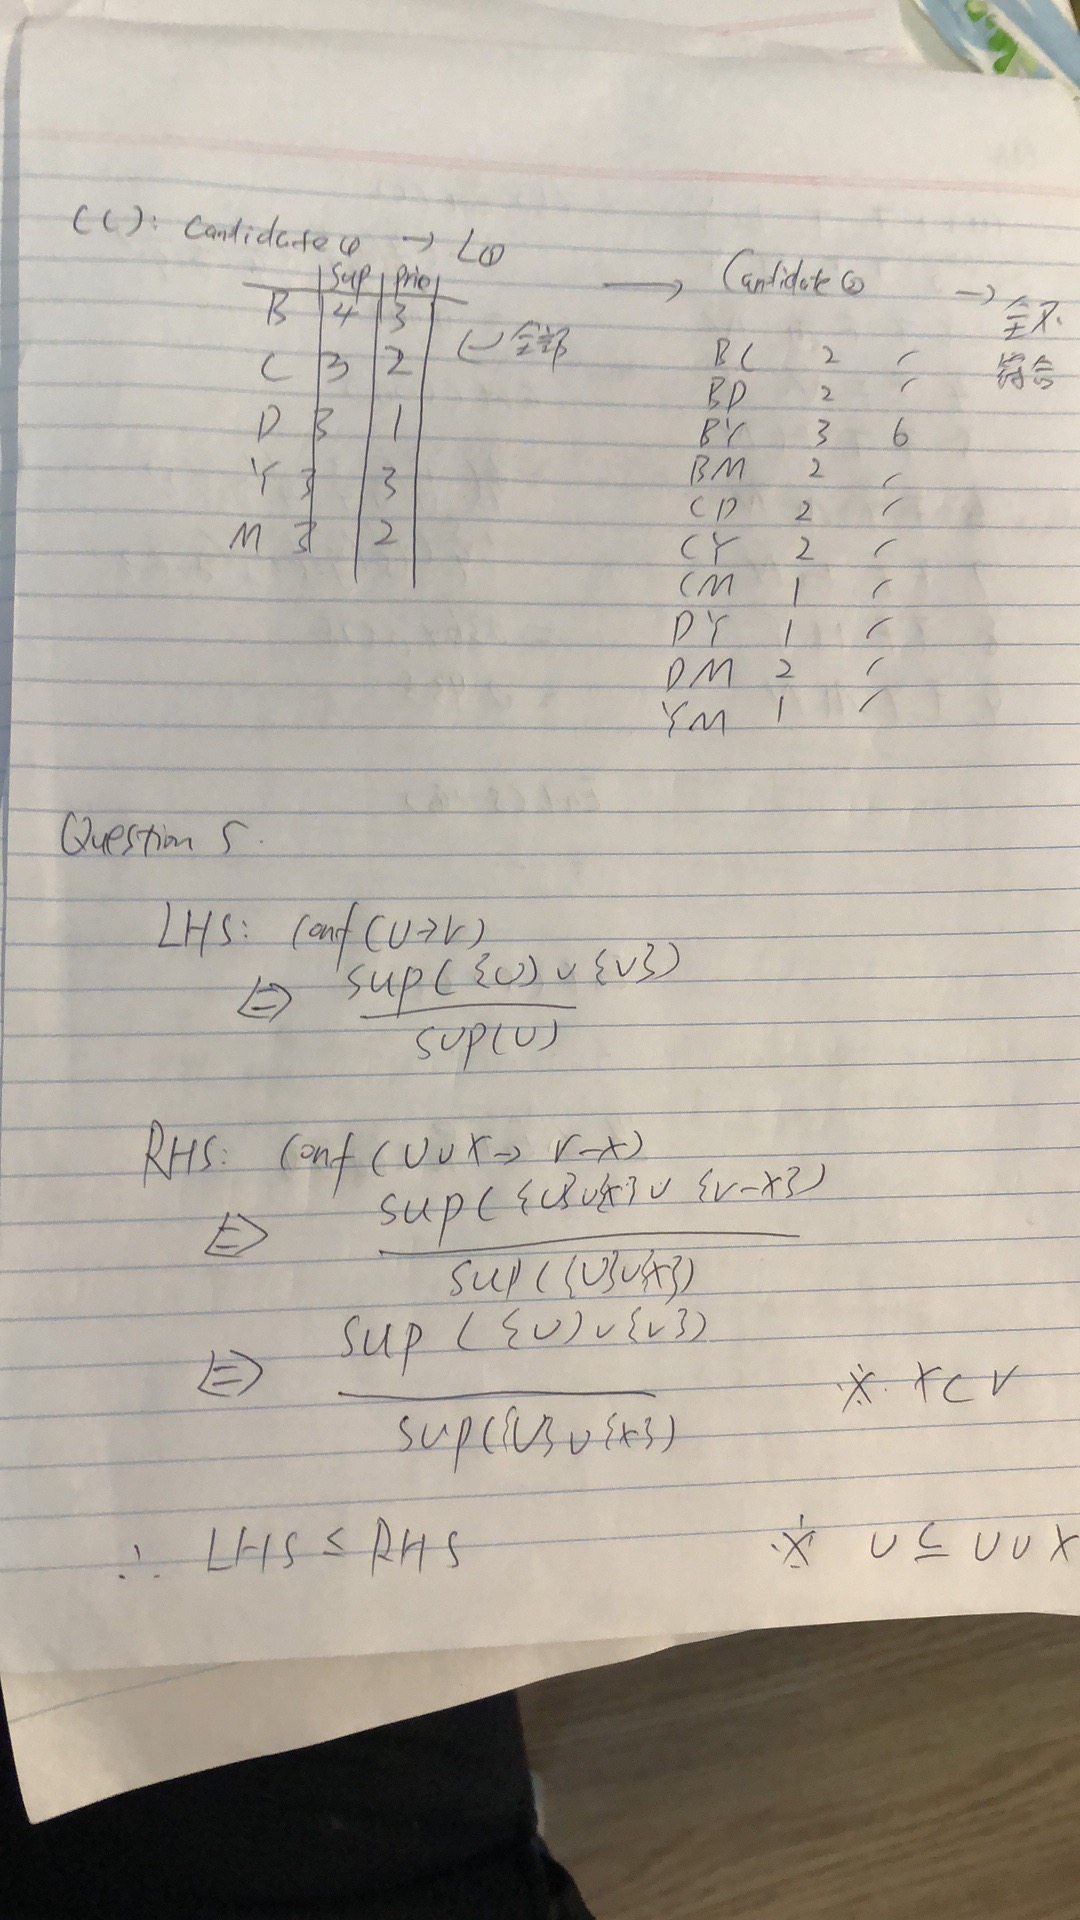 (C): Candidate① → L①
Sup Pric
B 4 3
C 3 2
D 3 1
Y 3 3
M 3 2
全部
→ Candidate② → 全不符合
BC 2
BD 2
BY 3 6
BM 2
CD 2
CY 2
CM 1
DY 1
DM 2
YM 1
Question 5.
LHS: Conf(U→V)
⇒ sup({U}∪{V})
sup(U)
RHS: Conf(U∪X→V-X)
⇒ sup({U}∪{X}∪{V-X})
sup({U}∪{X})
⇒ sup({U}∪{V})
sup({U}∪{X})
※ X⊂V
∴ LHS ≤ RHS
※ U⊆U∪X